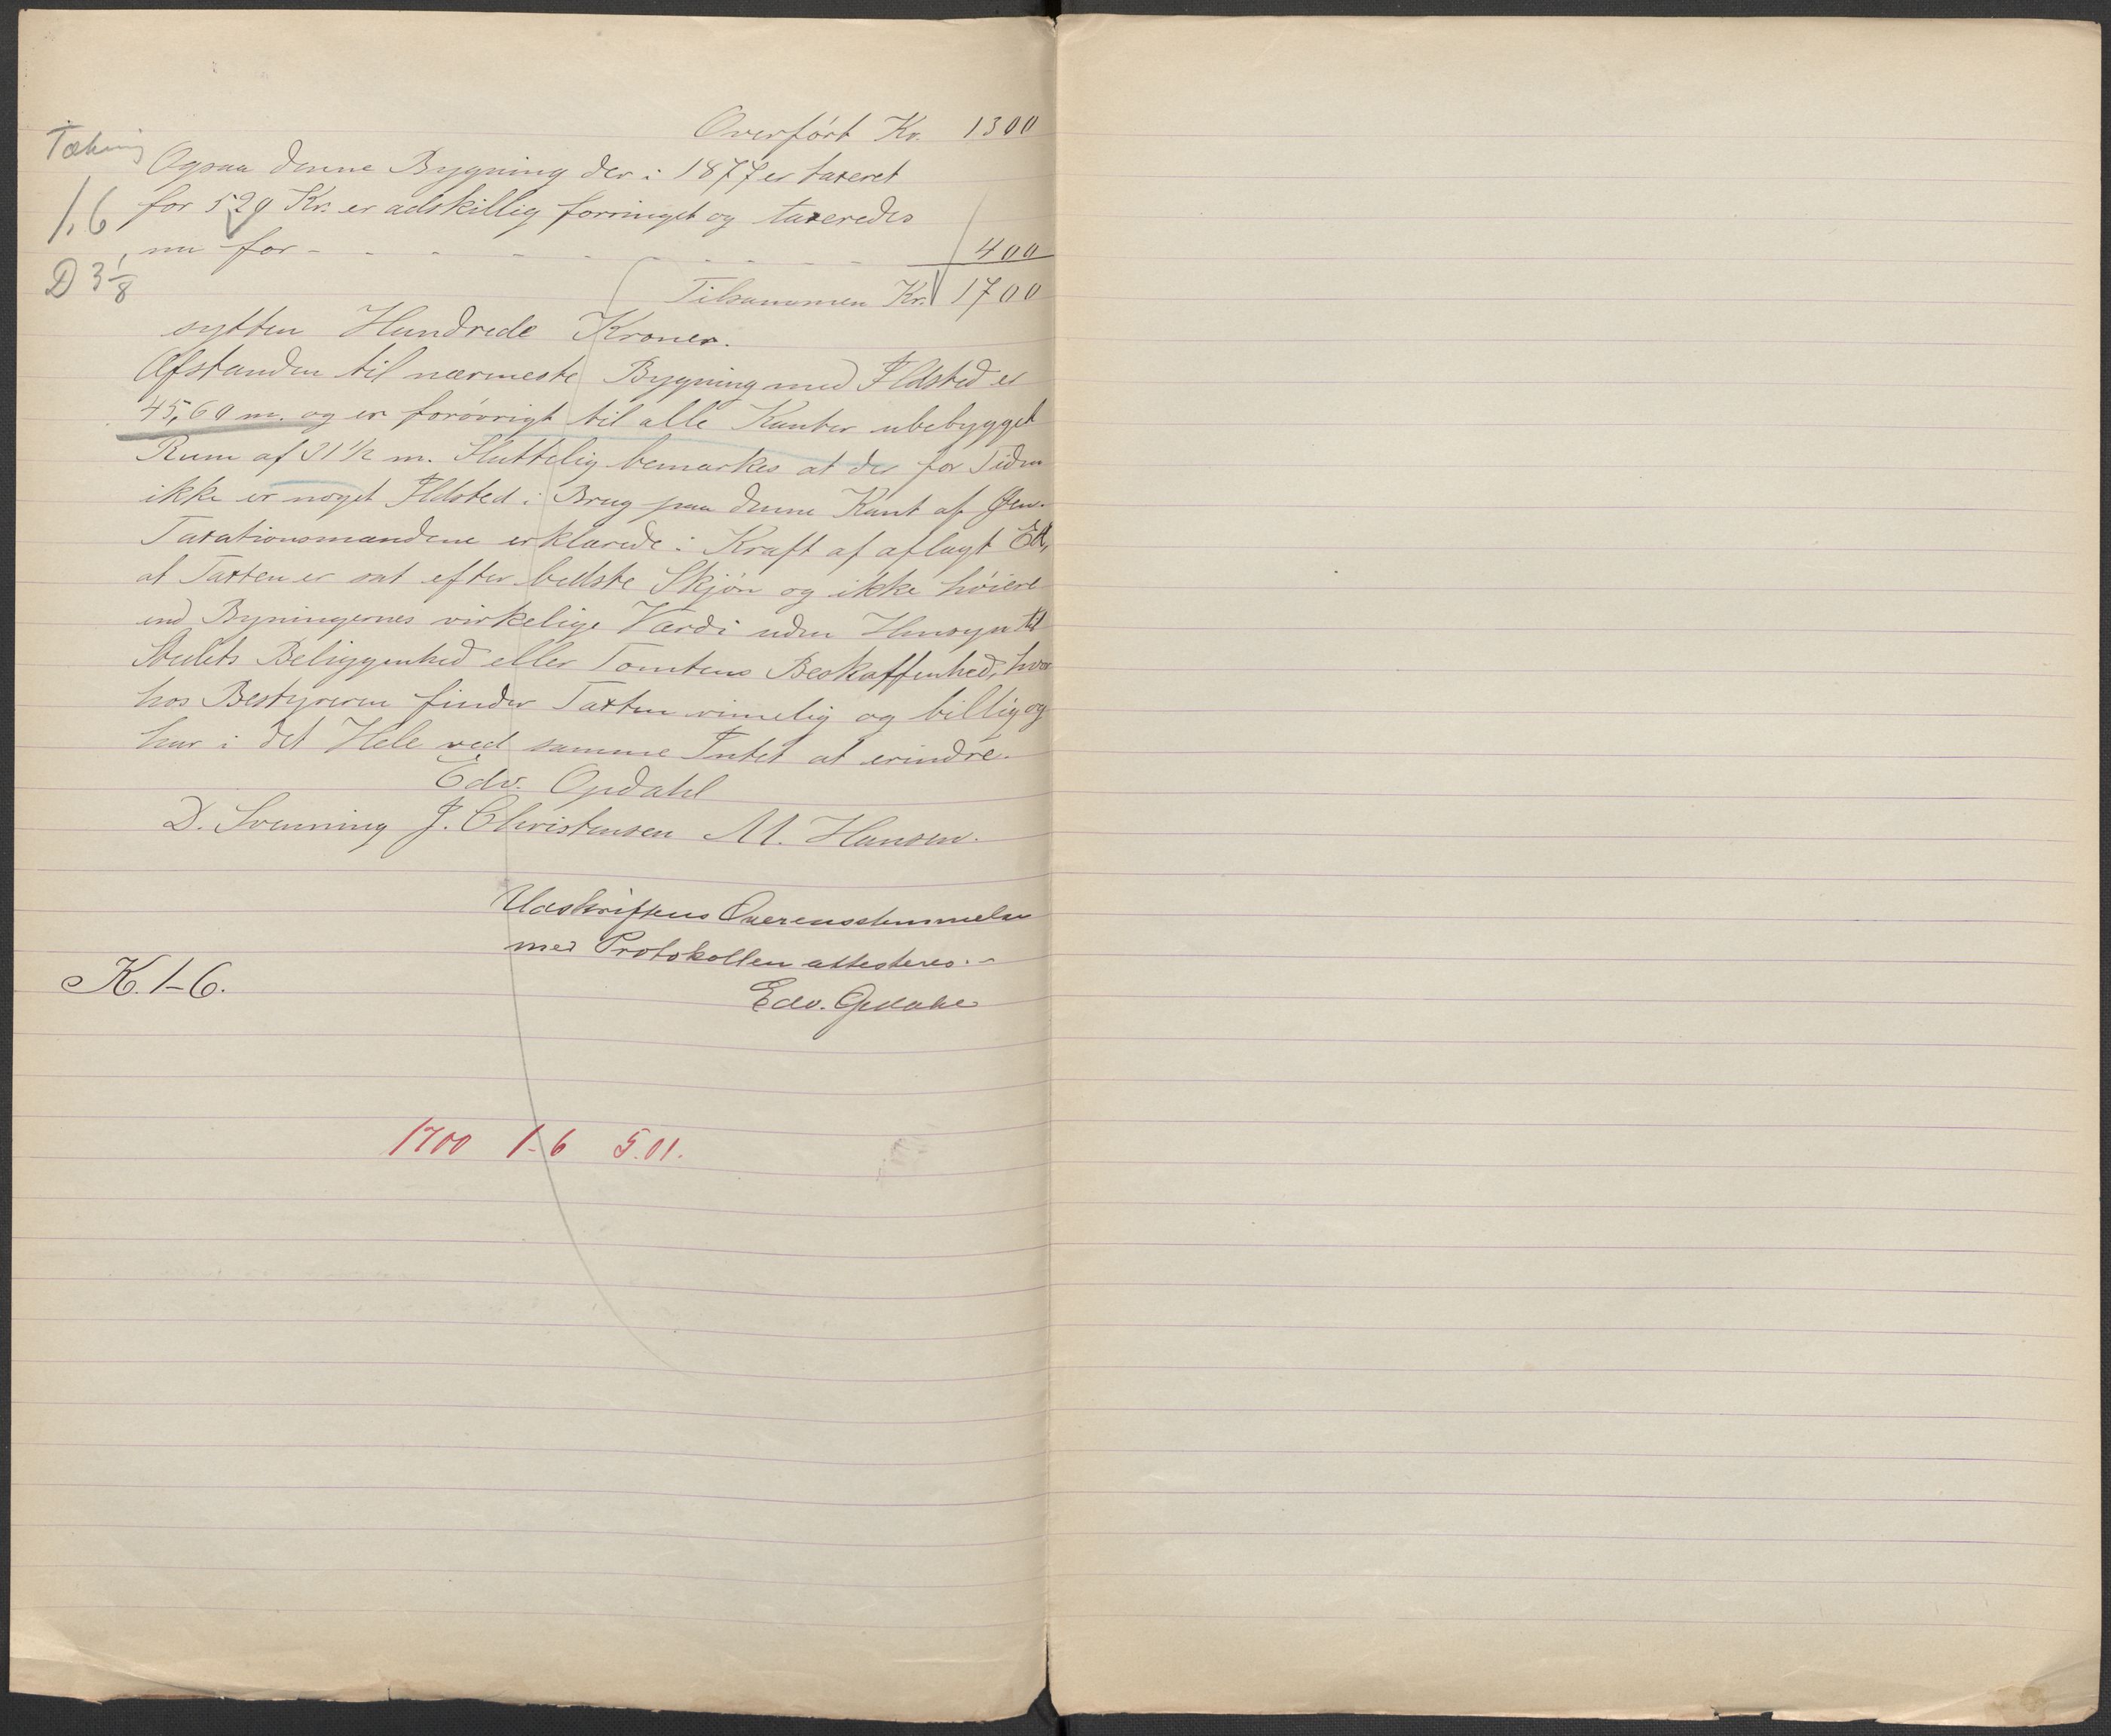 Overført Kr. 1300
Tækning
Ogsaa denne Bygning der i 1877 er taxeret
1,6
for 520 Kr. er adskillig forringet og taxeredes
nu for - - - - - - - - - 400
D 3 1/8
Tilsammen Kr. 1700
sytten Hundrede Kroner.
Afstanden til nærmeste Bygning med Ildsted er
45,60 m. og er forøvrigt til alle Kanter ubebygget
Rum af 31 1/2 m. Sluttelig bemærkes at der for Tiden
ikke er noget Ildsted i Brug paa denne Kant af Øen.
Taxationsmændene erklærede i Kraft af aflagt Ed,
at Taxten er sat efter bedste Skjøn og ikke høiere
end Bygningernes virkelige Værdi uden Hensyn til
Stedets Beliggenhed eller Tomtens Beskaffenhed, hvor
hos Bestyreren finder Taxten rimelig og billig og
har i det Hele ved samme Intet at erindre.
Edv. Opdahl
D. Svenning J. Christensen M. Hansen.
Udskriftens Overensstemmelse
med Protokollen attesteres.-
K. 1-6.
Edv. Opdahl
1700 1-6 5.01.